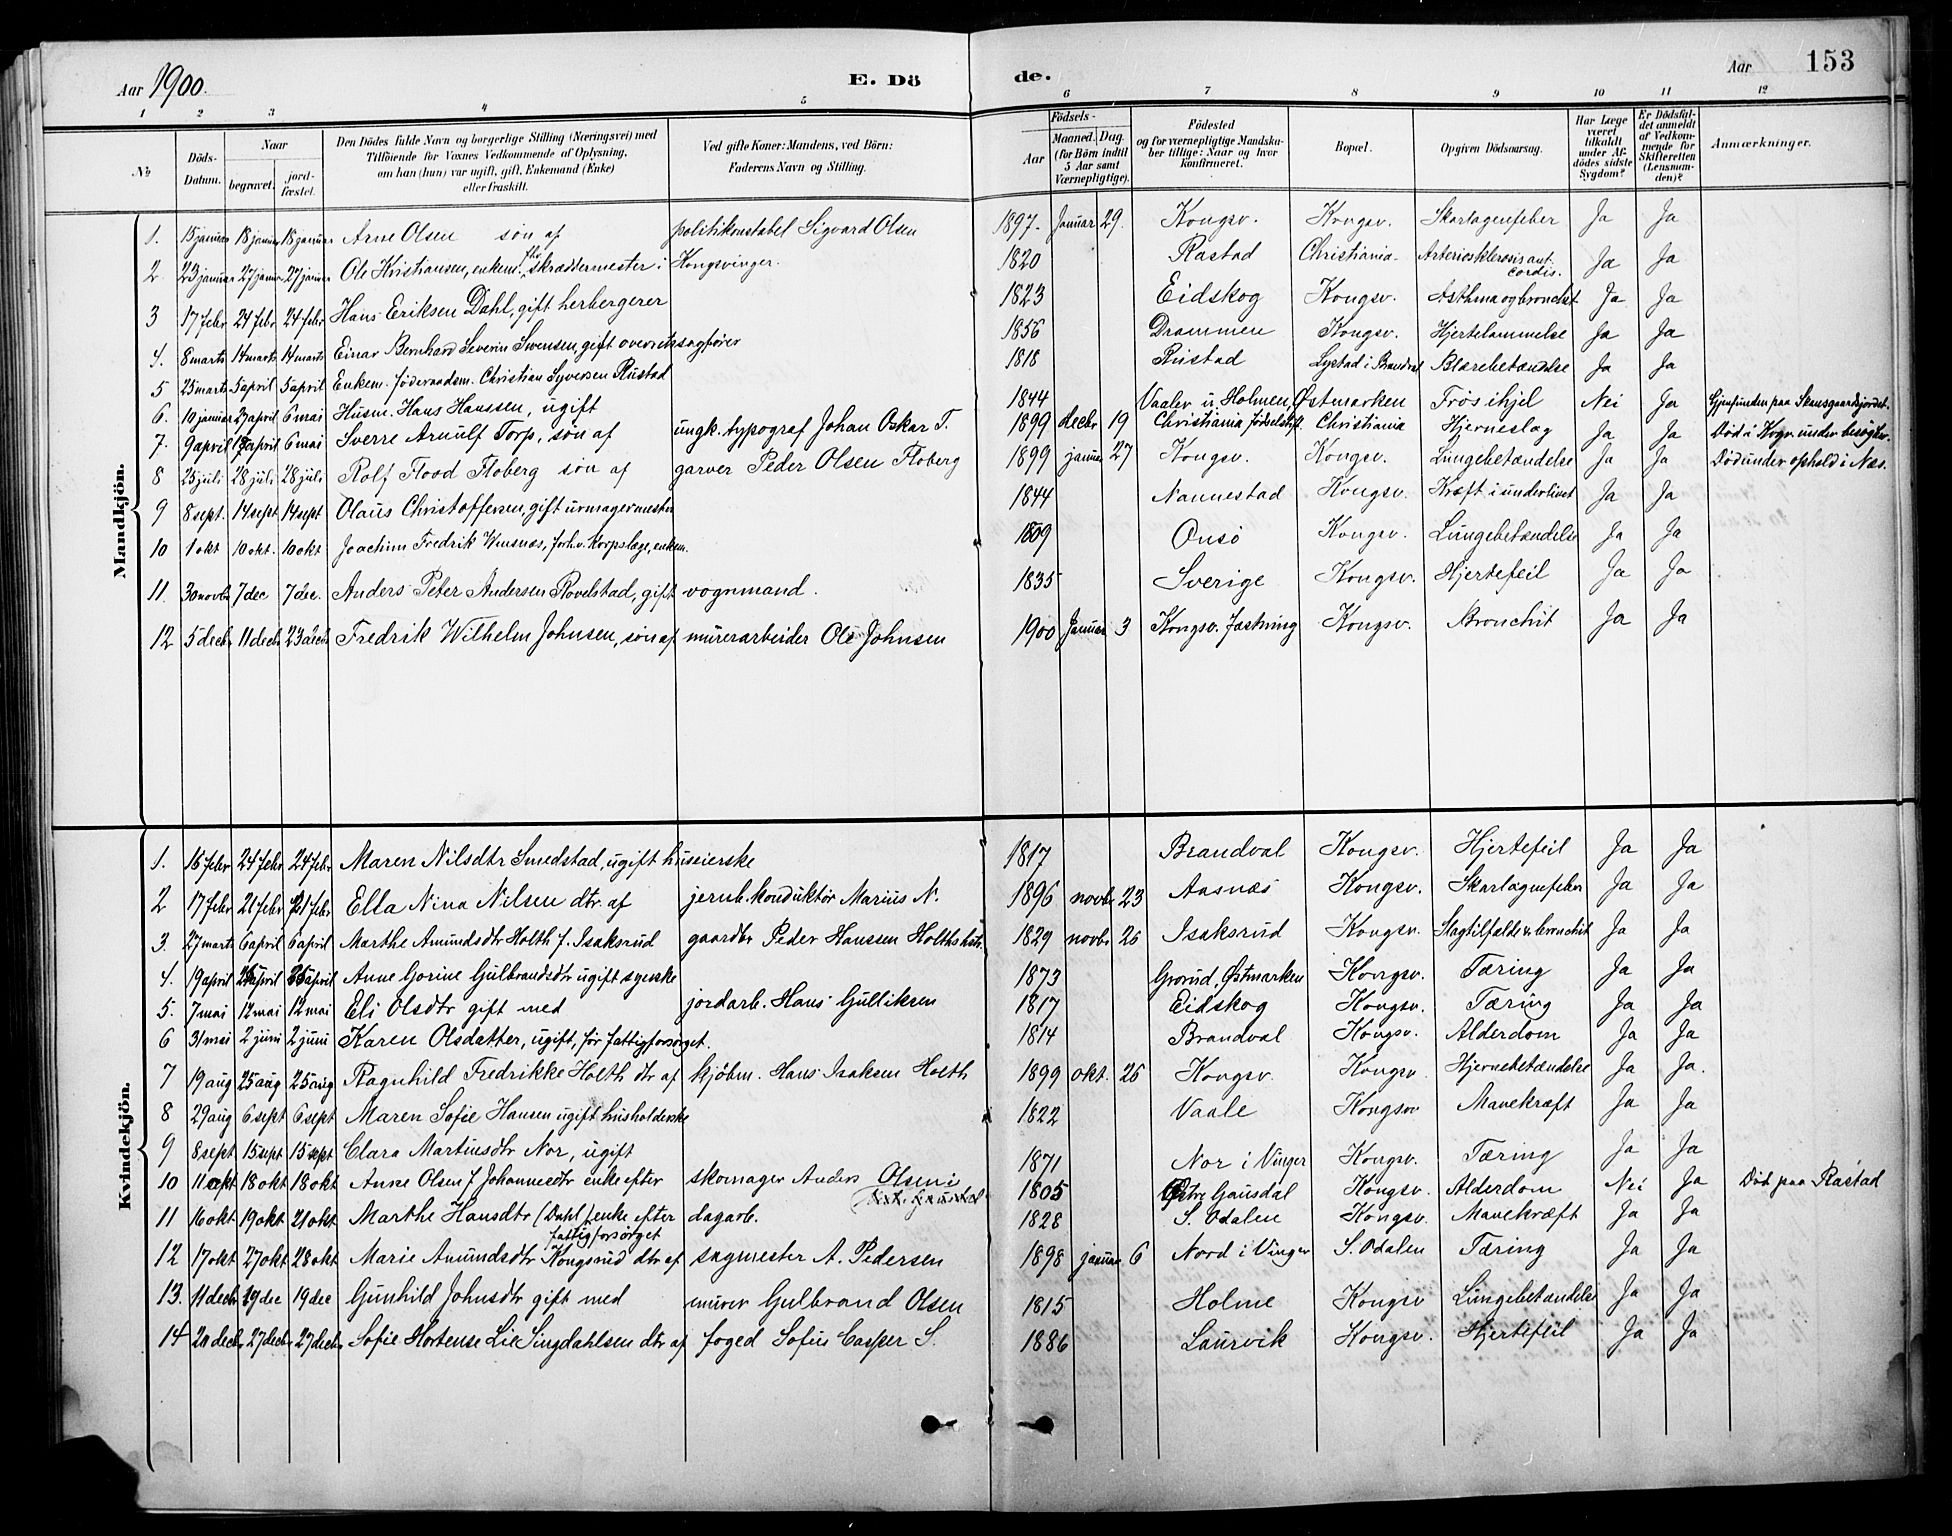 Aar 1900. E. Dö de. Aar 153
1 2 3 4 5 6 7 8 9 10 11 12
No Döds-Datum. Naar begravet. jord-fæstet. Den Dödes fulde Navn og borgerlige Stilling (Næringsvei) med Tilföiende for Voxnes Vedkommende af Oplysning, om han (hun) var ugift, gift, Enkemand (Enke) eller fraskilt. Ved gifte Koner: Mandens, ved Börn: Faderens Navn og Stilling. Födsels- Aar Maaned. Dag. (for Börn indtil 5 Aar samt Værnepligtige). Födested og for værnepligtige Mandskaber tillige: Naar og hvor konfirmeret. Bopæl. Opgiven Dödsaarsag. Har Læge været tilkaldt under Afdödes sidste Sygdom? Er Dödsfaldet anmeldt af Vedkommende for Skifteretten (Lensmanden)? Anmærkninger.
Mandkjön.
1. 15 januar 18 januar 18 januar Arne Olsen søn af politikonstabel Sigvard Olsen 1897 Januar 29. Kongsv. Kongsv. Skarlagensfeber Ja Ja
2 23 januar 27 januar 27 januar Ole Kristiansen, enkem. fhv. skræddermester i Kongsvinger. 1820 Rastad Christiania Arteriosklerosis aut. cordis. Ja Ja
3 17 febr 24 febr 24 febr Hans Eriksen Dahl, gift herbergerer 1823 Eidskog Kongsv. Asthma og bronchit Ja Ja
4. 8 marts 14 marts 14 marts Einar Bernhard Severin Svensen, gift overretssagfører 1856 Drammen Kongsv. Hjertelammelse Ja Ja
5 25 marts 5 april 5 april Enkem. føderaadsm. Christian Syversen Rustad 1818 Rustad Lystad i Brandval Blærebetændelse Ja Ja
6. 10 januar 29 april 6 mai Husm. Hans Hanssen, ugift 1844 Vaaler u Holmen, Østmarken Frøs ihjel Nei Ja Gjenfunden paa Skansgaardsjordet.
7. 9 april april 6 mai Sverre Arnulf Torp, søn af ungk. typograf Johan Oskar T. 1899 decbr 19 Christiania fødselsst. Christiania Hjerneslag Ja Ja Død i Kogv. under besøg her.
8 25 juli 28 juli 28 juli Rolf Flood Floberg søn af garver Peder Olsen Floberg 1899 januar 27 Kongsv. Kongsv. Lungebetændelse Ja Ja Død under ophold i Næs.
9 8 sept. 14 sept 14 sept Olaus Christoffersen, gift urmagermester 1844 Nannestad Kongsv. Kræft i underlivet Ja Ja
10 1 okt 10 okt. 10 okt Joachim Fredrik Wiesnæs, forh.v. korpslæge, enkem. 1809 Onsø Kongsv. Lungebetændelse Ja Ja
11. 30 novbr 7 dec 7 dec. Anders Peter Andersen Rovelstad, gift vognmand. 1835 Sverige Kongsv. Hjertefeil Ja Ja
12 5 decbr 11 decb 23 decbr Fredrik Wilhelm Johnsen, søn af murerarbeider Ole Johnsen 1900 Januar 3 Kongsv. fæstning Kongsv. Bronchit Ja Ja
Kvindekjön.
1. 16 febr 24 febr 24 febr Maren Nilsdtr Smedstad, ugift huseierske 1817 Brandval Kongsv. Hjertefeil Ja Ja
2 17 febr 21 febr 21 febr Ella Nina Nilsen dtr. af jernb. konduktør Marius N. 1896 novbr 23 Aasnæs Kongsv. Skarlagensfeber Ja Ja
3. 27 marts 6 april 6 april Marthe Amundsdtr Holth f. Isaksrud gaardbr Peder Hanssen Holths hstr. 1829 novbr 26 Isaksrud Kongsv. Slagtilfælde & bronchit Ja Ja
4. 19 april april april Anne Gorine Gulbrandsdtr ugift syerske 1873 Grorud, Østmarken Kongsv. Tæring Ja Ja
5. 7 mai 12 mai 12 mai Eli Olsdtr gift med jordarb. Hans Gulliksen 1817 Eidskog Kongsv. Tæring Ja Ja
6 31 mai 2 juni 2 juni Karen Olsdatter, ugift, før fattigforsørget. 1814 Brandval Kongsv. Alderdom Ja Ja
7 19 aug 25 aug 25 aug Ragnhild Fredrikke Holth dtr af kjøbm. Hans Isaksen Holth 1899 okt. 26 Kongsv. Kongsv. Hjernebetændelse Ja Ja.
8 29 aug 6 sept 6 sept Maren Sofie Hansen ugift husholderske 1822 Vaale Kongsv Mavekræft Ja Ja
9 8 sept 15 sept 15 sept Clara Martinsdtr Nor, ugift 1871 Nor i Vinger Kongsv. Tæring Ja Ja
10 11 okt 18 okt 18 okt Anne Olsen f Johannesdtr enke efter skomager Anders Olsen i 1805 Østre Gausdal Kongsv. Alderdom Nei Ja Død paa Rastad
11 16 okt 19 okt 21 okt Marthe Hansdtr (Dahl) enke efter dagarb. fattigforsørget 1828 S. Odalen Kongsv. Mavekræft Ja Ja
12 17 okt 27 okt 28 okt Marie Amundsdtr Kongsrud dtr af sagmester A. Pedersen 1898 januar 6 Nord i Vinger S. Odalen Tæring Ja Ja
13. 11 decbr 19 dec 19 dec Gunhild Johnsdtr gift med murer Gulbrand Olsen 1815 Holme Kongsv Lungebetændelse Ja Ja
14 20 decbr 27 decbr 27 decbr Sofie Hortense Lie Singdahlsen dtr af foged Sofus Casper S. 1886 Laurvik Kongsv. Hjertefeil Ja Ja